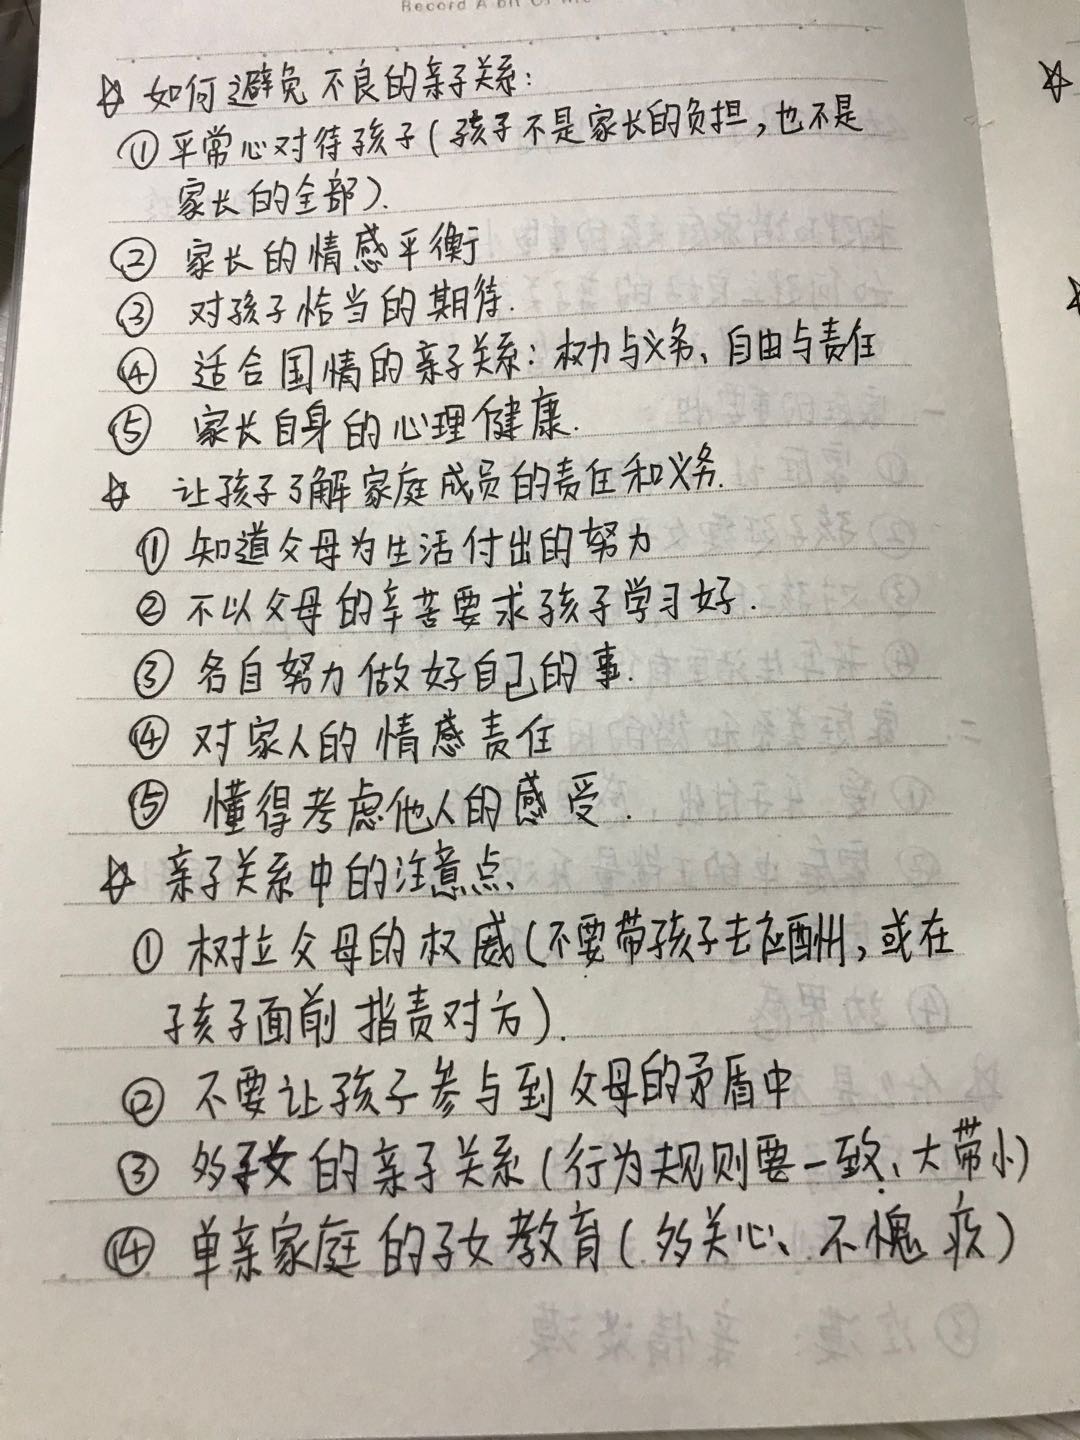 ☆ 如何避免不良的亲子关系:
① 平常心对待孩子(孩子不是家长的负担,也不是
家长的全部).
② 家长的情感平衡
③ 对孩子恰当的期待.
④ 适合国情的亲子关系:权力与义务、自由与责任
⑤ 家长自身的心理健康.
☆ 让孩子了解家庭成员的责任和义务.
① 知道父母为生活付出的努力
② 不以父母的辛苦要求孩子学习好.
③ 各自努力做好自己的事.
④ 对家人的情感责任
⑤ 懂得考虑他人的感受.
☆ 亲子关系中的注意点、
① 树立父母的权威(不要带孩子去应酬,或在
孩子面前指责对方).
② 不要让孩子参与到父母的矛盾中
③ 多子女的亲子关系(行为规则要一致、大带小)
④ 单亲家庭的子女教育(多关心、不愧疚)